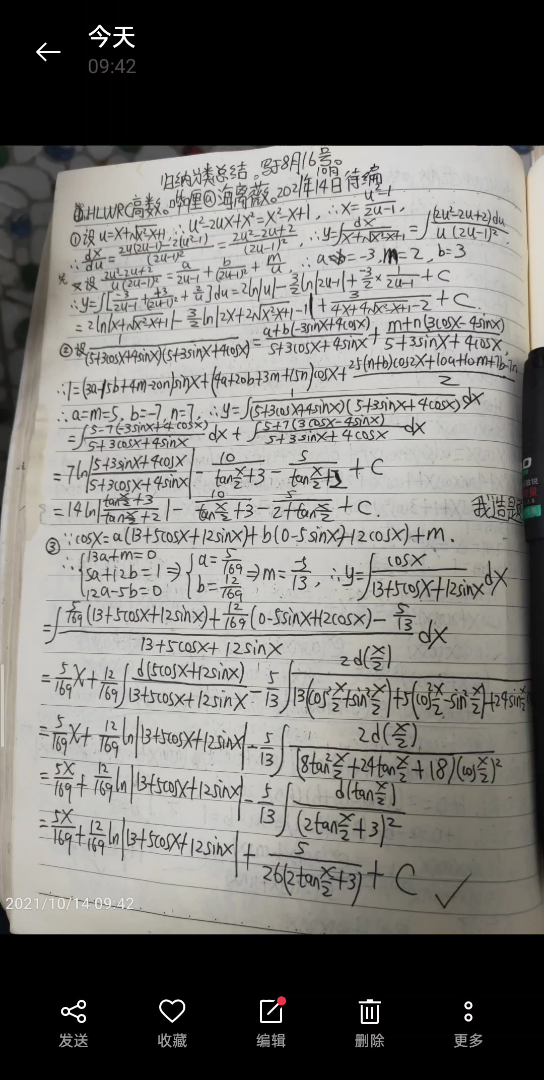 今天
09:42
归纳分类总结。写于8月16号。
HLWRC高数。哔哩@海离薇。2021年10月14日待编
①设u=x+√x²-x+1, ∴u²-2ux+x²=x²-x+1, ∴x=(u²-1)/(2u-1),
∴dx/du=(2u(2u-1)-2(u²-1))/(2u-1)²=(2u²-2u+2)/(2u-1)², ∴y=∫dx/(x+√x²-x+1)=∫(2u²-2u+2)du/(u(2u-1)²).
又设(2u²-2u+2)/(u(2u-1)²)=a/(2u-1)+b/(2u-1)²+m/u, ∴a=-3, m=2, b=3
∴y=∫[-3/(2u-1)+3/(2u-1)²+2/u]du=2ln|u|-3/2 ln|2u-1|+(-3/2)×1/(2u-1)+C
=2ln|x+√x²-x+1|-3/2 ln|2x+2√x²-x+1-1|+3/(4x+4√x²-x+1-2)+C.
②设1/((5+3cosx+4sinx)(5+3sinx+4cosx))=(a+b(-3sinx+4cosx))/(5+3cosx+4sinx)+(m+n(3cosx-4sinx))/(5+3sinx+4cosx),
∴a=m=5, b=-7, n=7, ∴y=∫1/((5+3cosx+4sinx)(5+3sinx+4cosx))dx
=∫(5-7(-3sinx+4cosx))/(5+3cosx+4sinx)dx+∫(5+7(3cosx-4sinx))/(5+3sinx+4cosx)dx
=7ln|(5+3sinx+4cosx)/(5+3cosx+4sinx)|-10/(tan x/2+3)-5/(tan x/2+2)+C
=14ln|(tan x/2+3)/(tan x/2+2)|-10/(tan x/2+3)-5/(2+tan x/2)+C. 我造题
③∵cosx=a(13+5cosx+12sinx)+b(0-5sinx+12cosx)+m.
∴{13a+m=0 5a+12b=1 12a-5b=0⇒{a=5/169 b=12/169⇒m=-5/13, ∴y=∫cosx/(13+5cosx+12sinx)dx
=∫(5/169(13+5cosx+12sinx)+12/169(0-5sinx+12cosx)-5/13)/(13+5cosx+12sinx)dx
=5/169x+12/169∫d(5cosx+12sinx)/(13+5cosx+12sinx)-5/13∫2d(x/2)/(13(cos²x/2+sin²x/2)+5(cos²x/2-sin²x/2)+24sin x/2
=5/169x+12/169ln|13+5cosx+12sinx|-5/13∫2d(x/2)/((8tan²x/2+24tan x/2+18)(cos x/2)²)
=5x/169+12/169ln|13+5cosx+12sinx|-5/13∫d(tan x/2)/(2tan x/2+3)²
=5x/169+12/169ln|13+5cosx+12sinx|+5/(26(2tan x/2+3))+C ✓
2021/10/14 09:42
发送 收藏 编辑 删除 更多